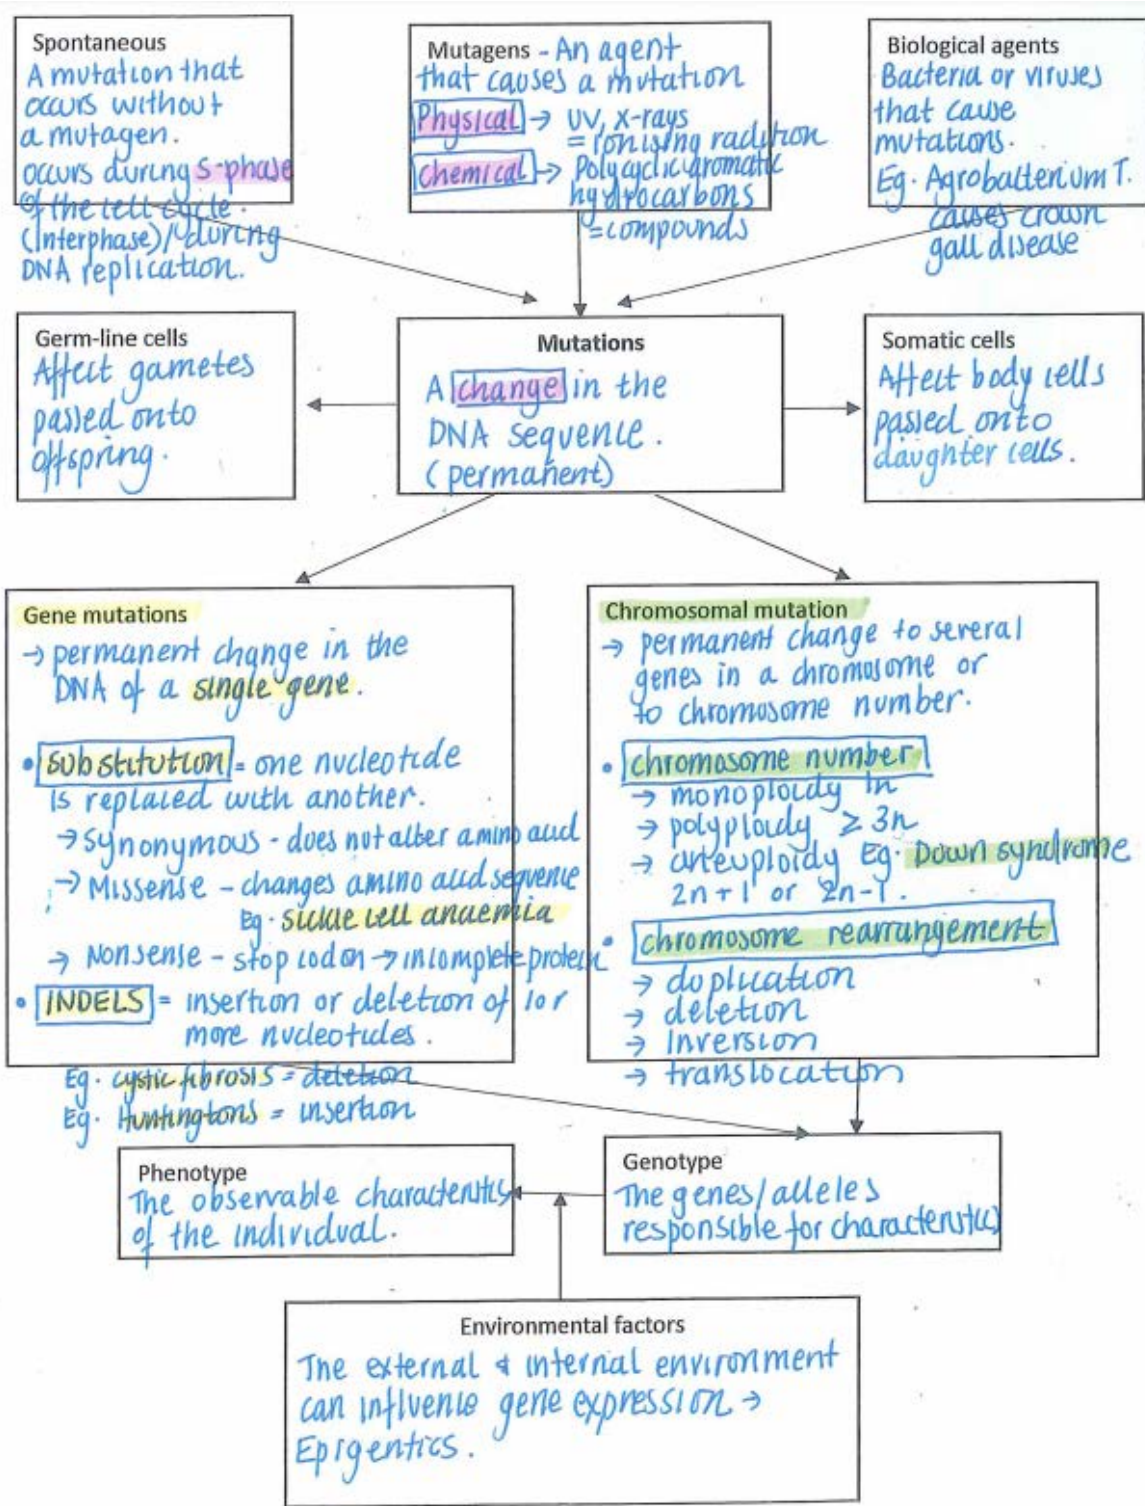 Spontaneous
A mutation that
occurs without
a mutagen.
occurs during S-phase
of the cell cycle.
(Interphase)/during
DNA replication.
Mutagens - An agent
that causes a mutation
Physical → UV, x-rays
= ionising radition
Chemical → Polycyclic aromatic
hydrocarbons
= compounds
Biological agents
Bacteria or viruses
that cause
mutations.
Eg. Agrobacterium T.
causes crown
gall disease
Germ-line cells
Affect gametes
passed onto
offspring.
Mutations
A change in the
DNA sequence.
(permanent)
Somatic cells
Affect body cells
passed onto
daughter cells.
Gene mutations
→ permanent change in the
DNA of a single gene.
• Substitution = one nucleotide
is replaced with another.
→ Synonymous - does not alter amino acid
→ Missense - changes amino acid sequence
Eg. sickle cell anaemia
→ Nonsense - stop codon → incomplete protein
• INDELS = insertion or deletion of 1 or
more nucleotides.
Eg. cystic fibrosis = deletion
Eg. Huntingtons = insertion
Chromosomal mutation
→ permanent change to several
genes in a chromosome or
to chromosome number.
• chromosome number
→ monoploidy 1n
→ polyploidy ≥ 3n
→ aneuploidy Eg. Down syndrome
2n+1 or 2n-1.
• chromosome rearrangement
→ duplication
→ deletion
→ inversion
→ translocation
Phenotype
The observable characteristics
of the individual.
Genotype
The genes/alleles
responsible for characteristics
Environmental factors
The external & internal environment
can influence gene expression →
Epigentics.